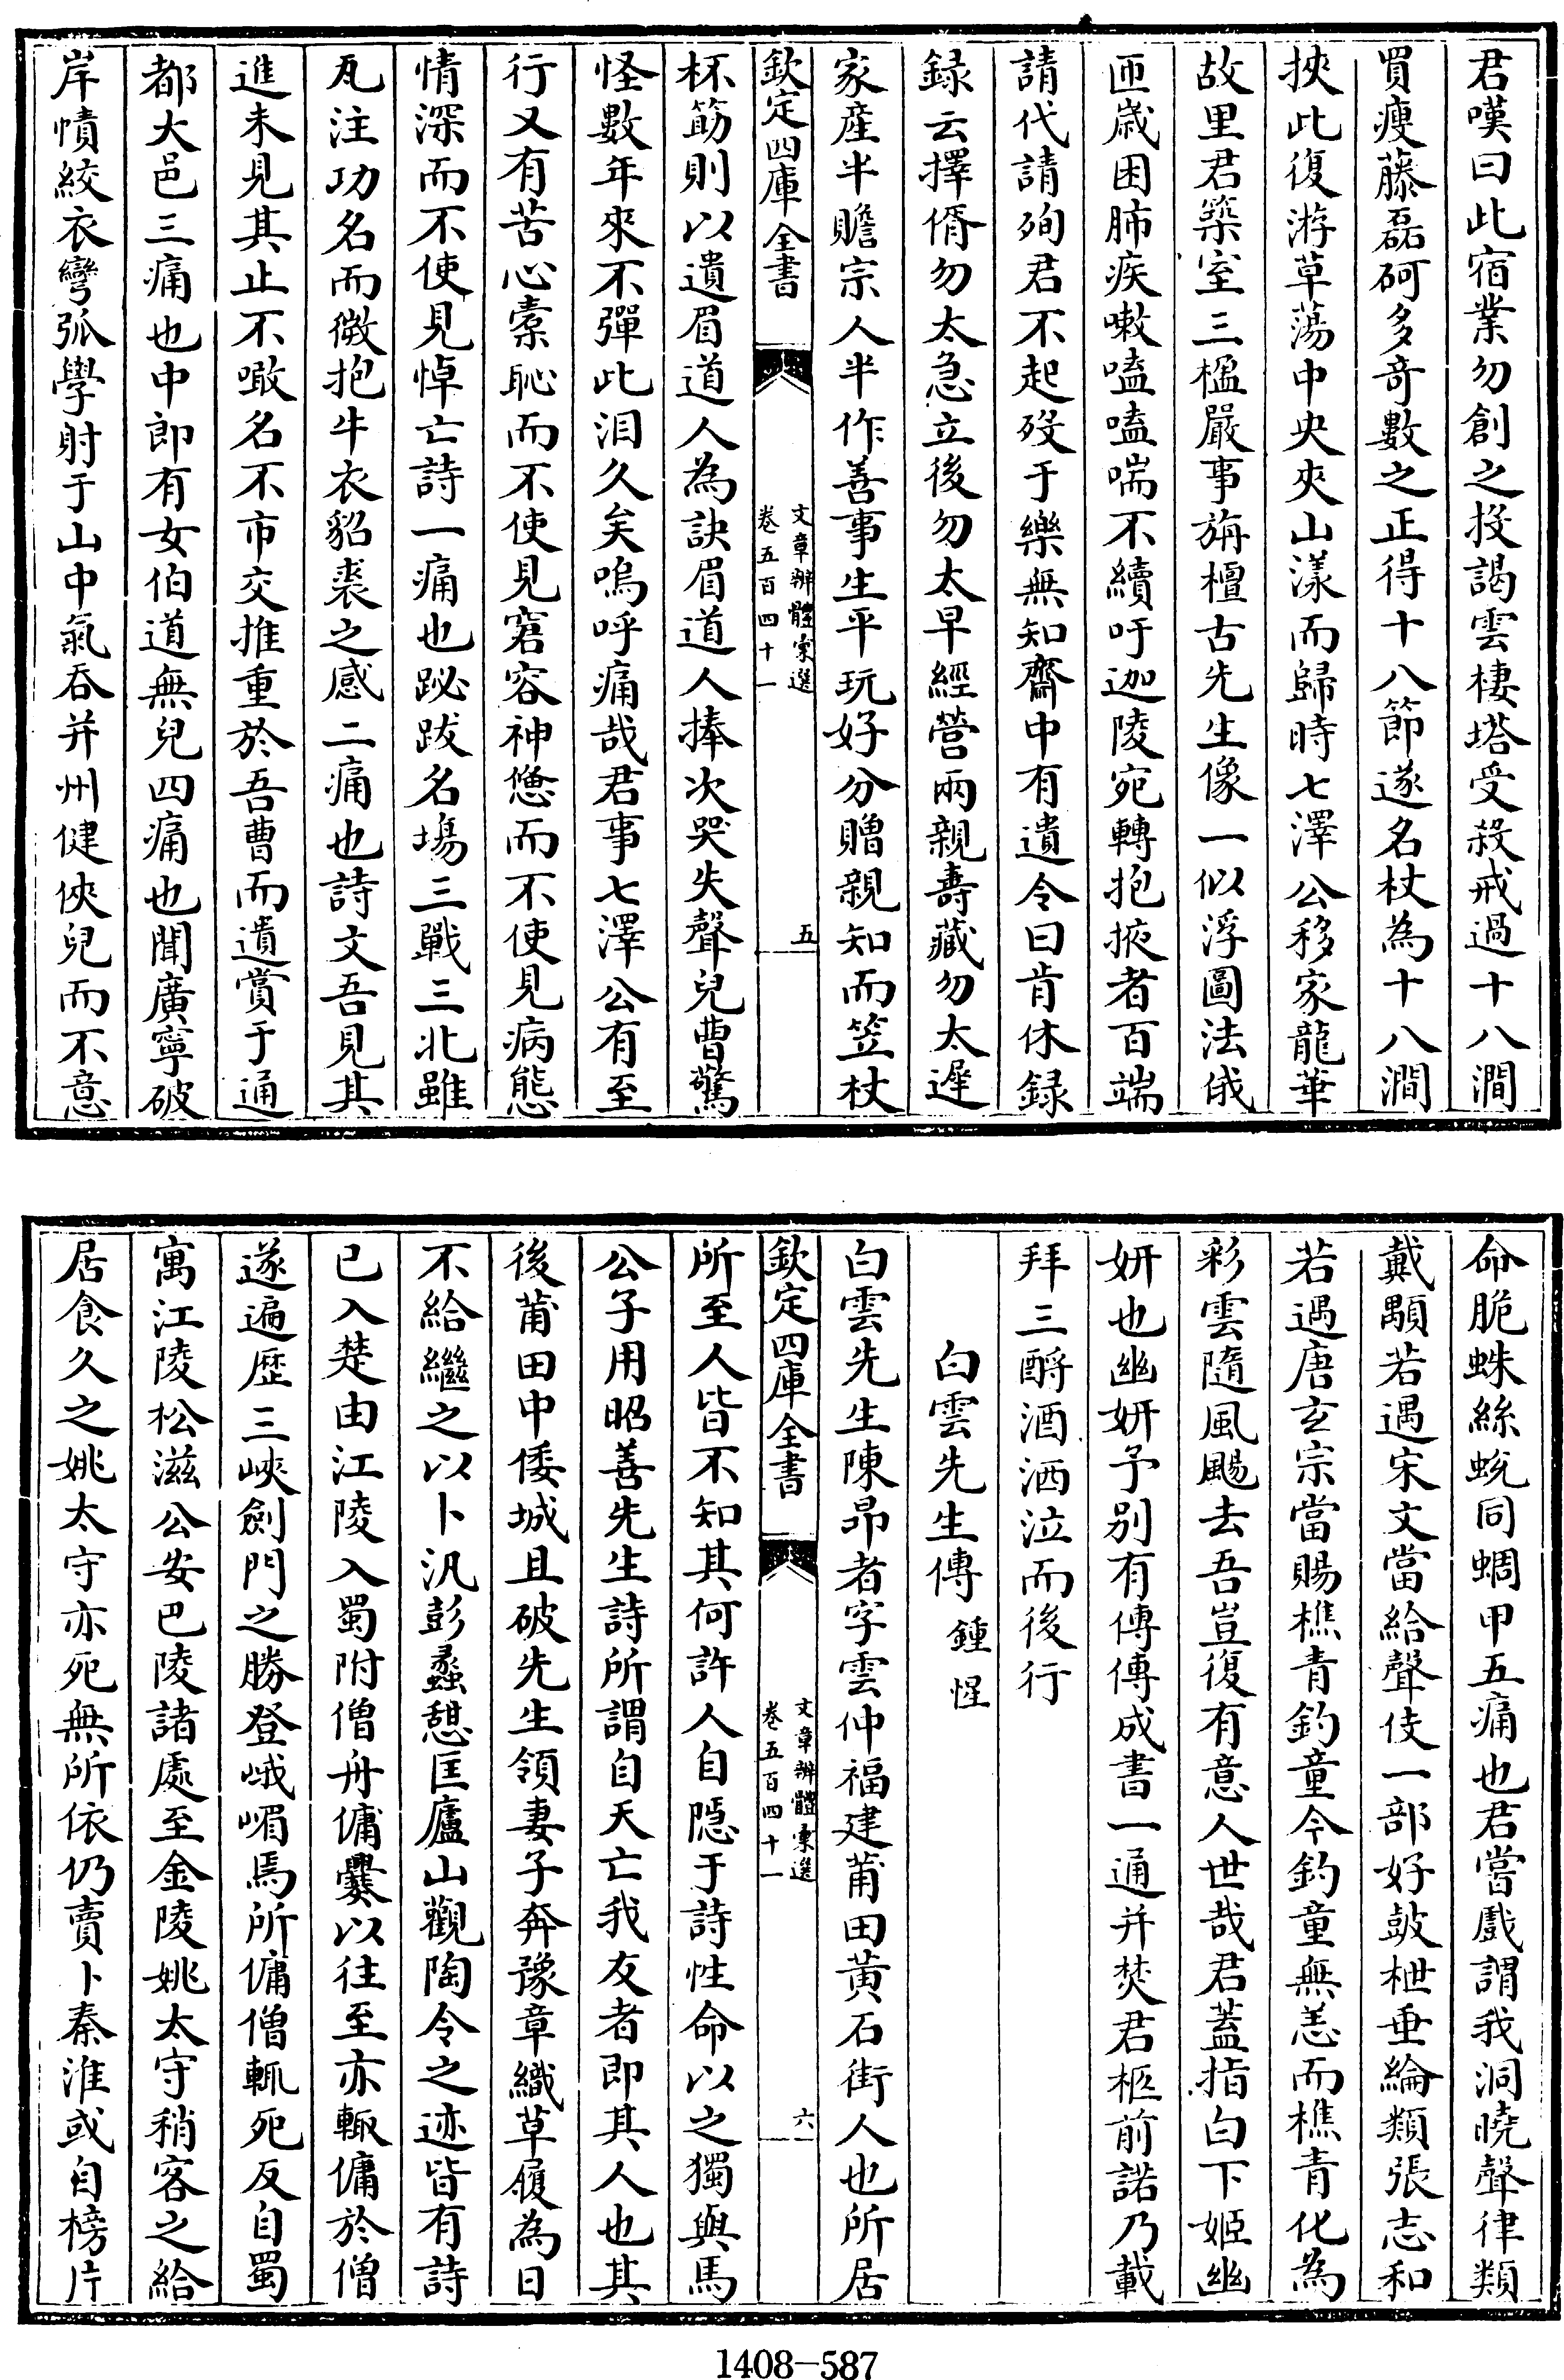 君嘆曰此宿業勿創之投謁雲棲塔受殺戒過十八澗
買瘦藤磊砢多竒數之正得十八節遂名杖為十八澗
挾此復游草蕩中央夾山漾而歸時七澤公移家龍華
故里君築室三楹嚴事旃檀古先生像一似浮圖法俄
匝歳困肺疾嗽嗑嗑喘不續吁迦陵宛轉抱掖者百端
請代請殉君不起歿于樂無知齋中有遺令曰肯休録
録云擇偦勿太急立後勿太早經營兩親壽藏勿太遲
家産半贍宗人半作善事生平玩好分贈親知而笠杖
欽定四庫全書
文章辨體彚選
卷五百四十一
五
杯筯則以遺眉道人為訣眉道人捧次哭失聲兒曹驚
怪數年來不彈此泪久矣嗚呼痛哉君事七澤公有至
行又有苦心槖恥而不使見窘容神憊而不使見病態
情深而不使見悼亡詩一痛也跎跋名塲三戰三北雖
瓦注功名而微抱牛衣貂裘之感二痛也詩文吾見其
進未見其止不噉名不市交推重於吾曹而遺賞于通
都大邑三痛也中郎有女伯道無兒四痛也聞廣寧破
岸幘絞衣彎弧學射于山中氣吞并州健俠兒而不意
命脆蛛絲蛻同蜩甲五痛也君嘗戲謂我洞曉聲律類
戴顒若遇宋文當給聲伎一部好敲枻垂綸類張志和
若遇唐玄宗當賜樵青釣童今釣童無恙而樵青化為
彩雲隨風颺去吾豈復有意人世哉君蓋指白下姬幽
妍也幽妍予别有傳傳成書一通并焚君柩前諾乃載
拜三酹酒洒泣而後行
白雲先生傳 鍾惺
白雲先生陳昻者字雲仲福建莆田黄石街人也所居
欽定四庫全書
文章辨體彚選
卷五百四十一
六
所至人皆不知其何許人自隠于詩性命以之獨與馬
公子用昭善先生詩所謂自天亡我友者即其人也其
後莆田中倭城且破先生領妻子奔豫章織草履為日
不給繼之以卜汎彭蠡憇匡廬山觀陶令之迹皆有詩
已入楚由江陵入蜀附僧舟傭爨以往至亦輙傭於僧
遂遍歴三峽劍門之勝登峨嵋焉所傭僧輒死反自蜀
寓江陵松滋公安巴陵諸處至金陵姚太守稍客之給
居食久之姚太守亦死無所依仍賣卜秦淮或自榜片
1408—587